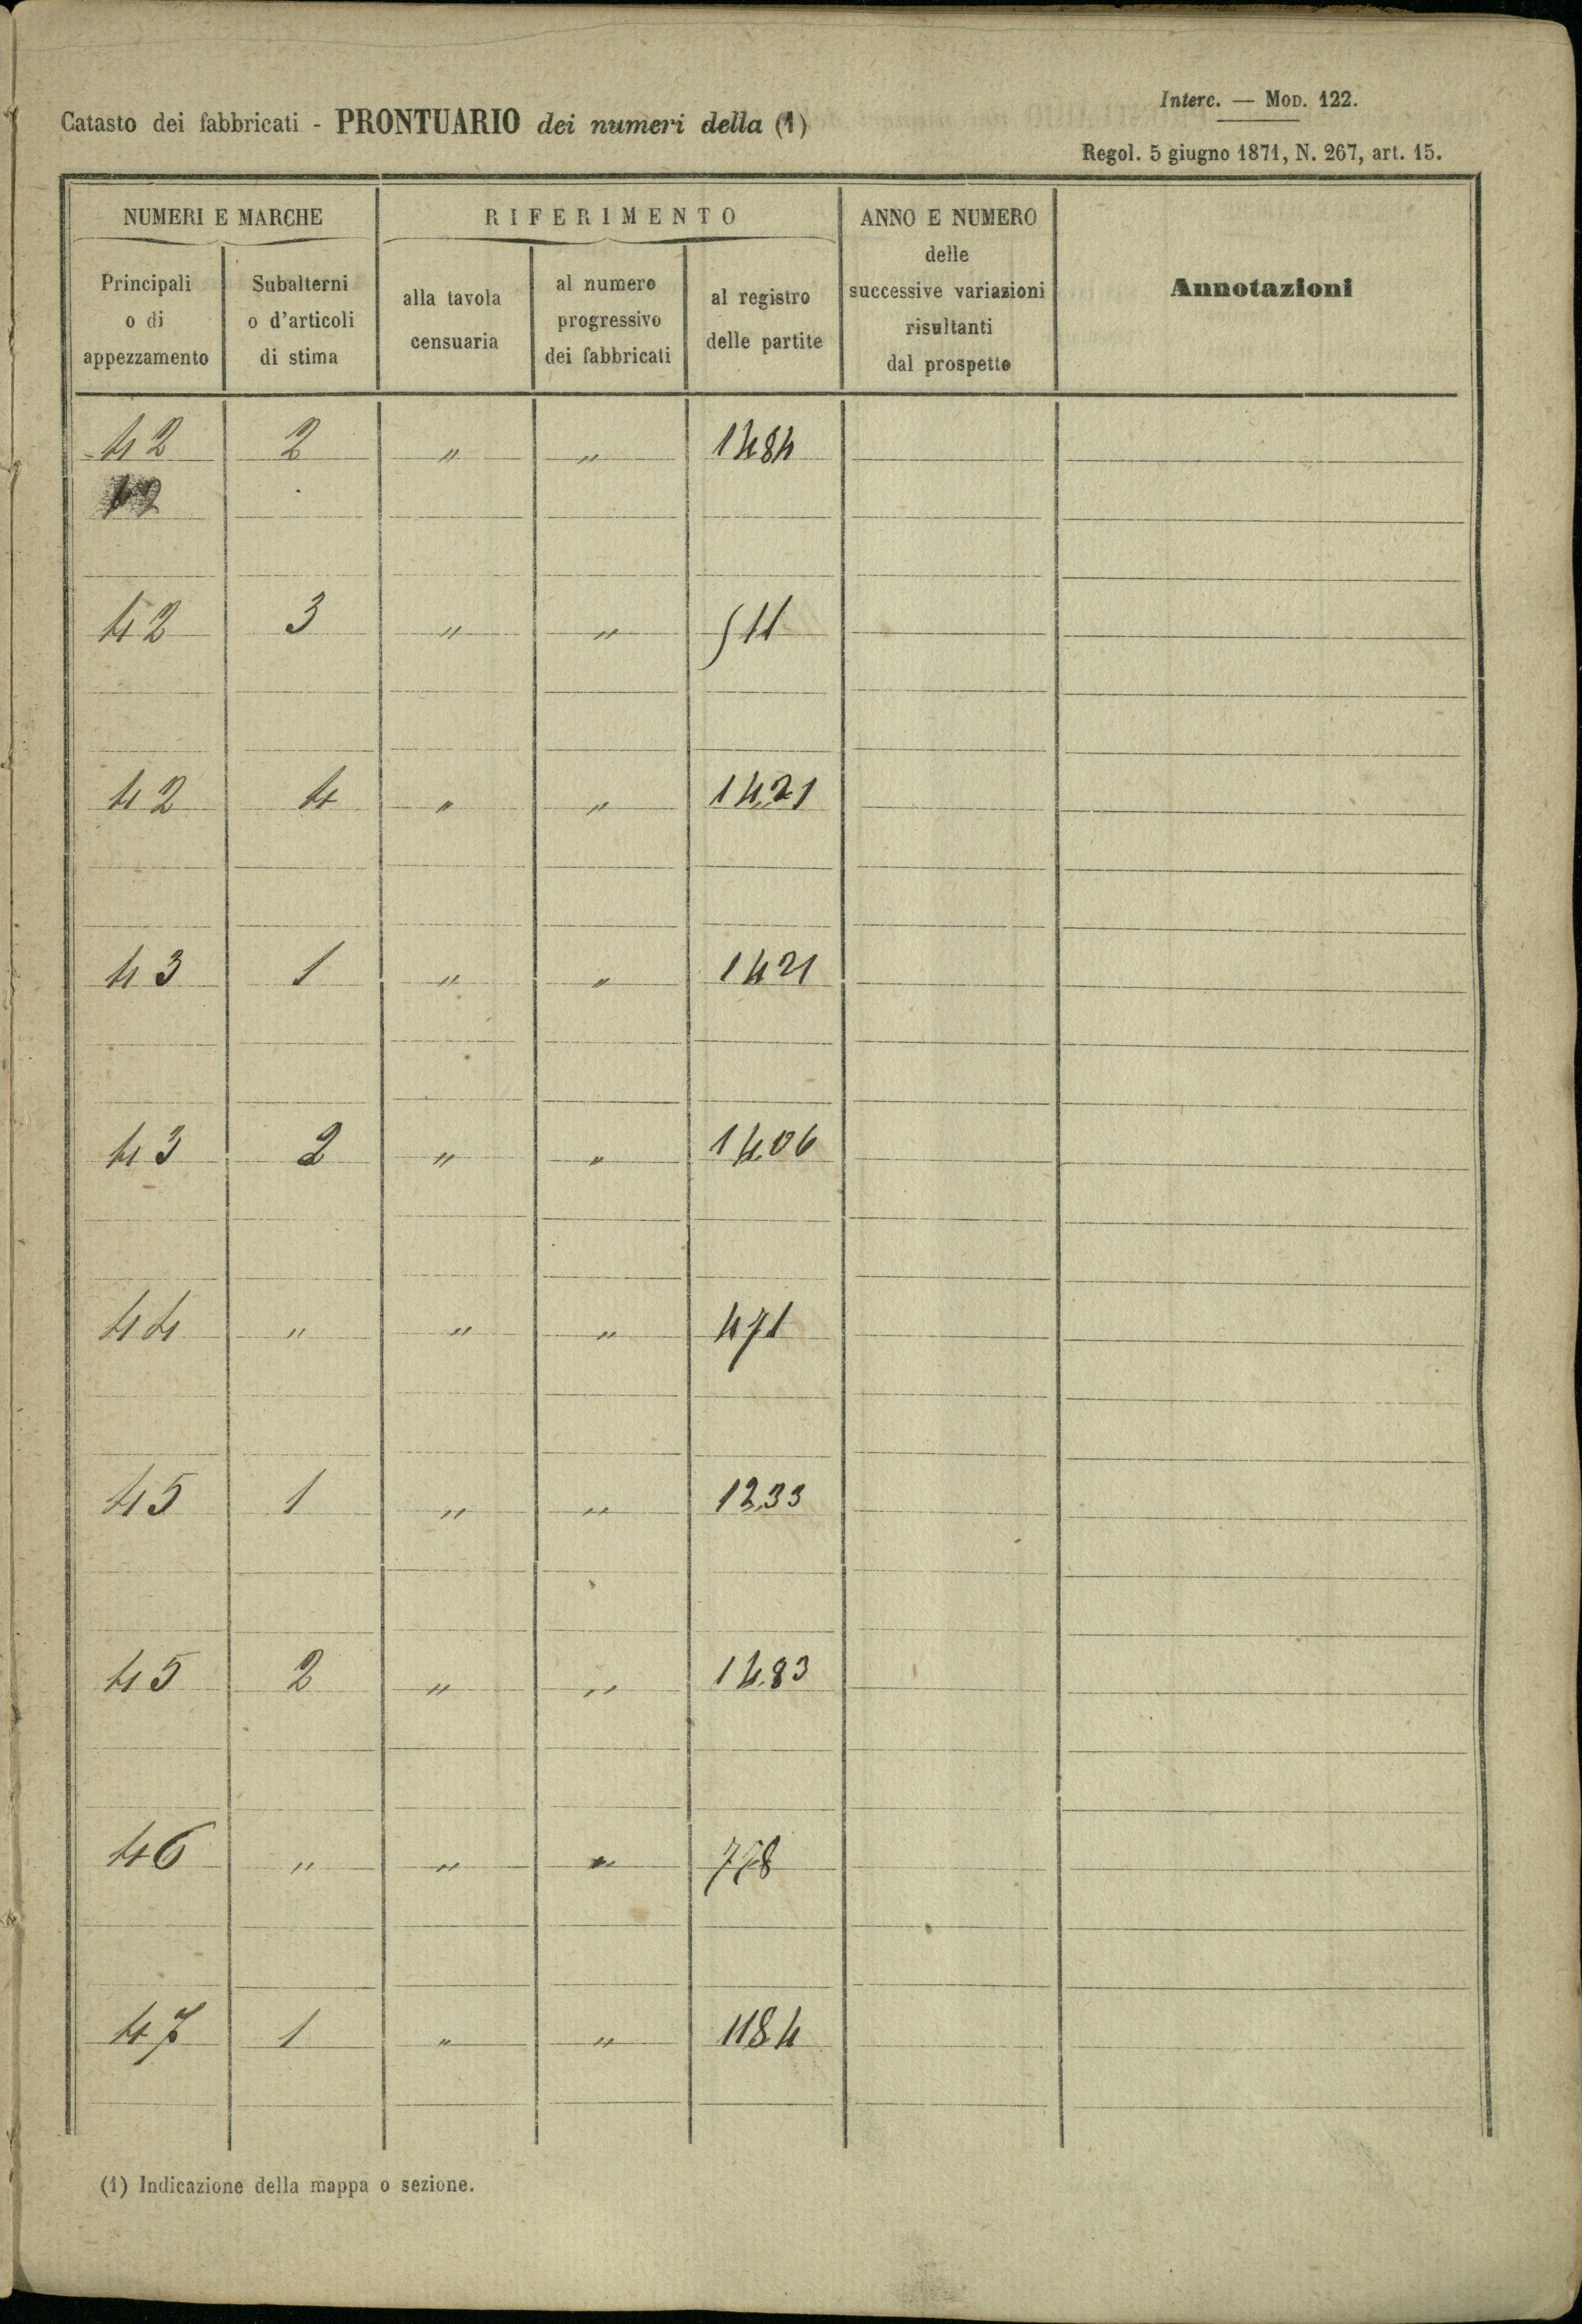 Interc. — Mod. 122.
Catasto dei fabbricati - PRONTUARIO dei numeri della (1)
Regol. 5 giugno 1871, N. 267, art. 15.
NUMERI E MARCHE
RIFERIMENTO
ANNO E NUMERO
delle
successive variazioni
risultanti
dal prospetto
Annotazioni
Principali
o di
appezzamento
Subalterni
o d'articoli
di stima
alla tavola
censuaria
al numero
progressivo
dei fabbricati
al registro
delle partite
42 2 " " 1484
42 3 " " 511
42 4 " " 1421
43 1 " " 1421
43 2 " " 1406
44 " " " 471
45 1 " " 1233
45 2 " " 1483
46 " " " 778
47 1 " " 1184
(1) Indicazione della mappa o sezione.